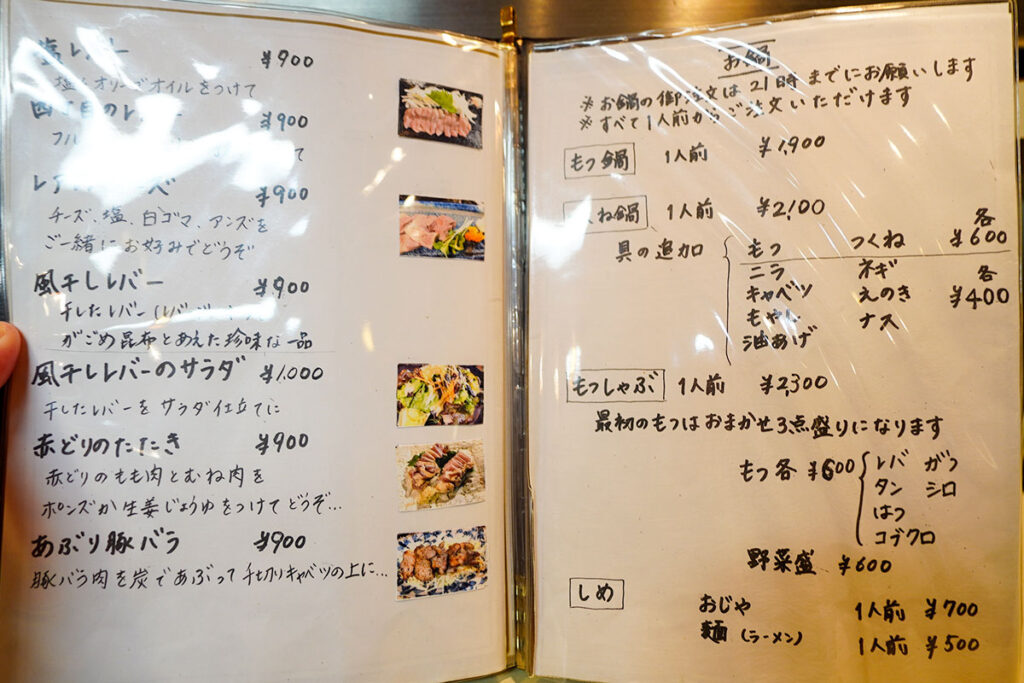 塩レバー ¥900
塩とオリーブオイルをつけて
¥900
レア ¥900
チーズ、塩、白ゴマ、アンズを
ご一緒にお好みでどうぞ
風干しレバー ¥900
干したレバー
がごめ昆布とあえた珍味な一品
風干しレバーのサラダ ¥1,000
干したレバーをサラダ仕立てに
赤どりのたたき ¥900
赤どりのもも肉とむね肉を
ポンズか生姜じょうゆをつけてどうぞ…
あぶり豚バラ ¥900
豚バラ肉を炭であぶって千切りキャベツの上に…
お鍋
※お鍋の御注文は21時までにお願いします
※すべて1人前からご注文いただけます
もつ鍋 1人前 ¥1,900
くね鍋 1人前 ¥2,100
具の追加 もつ つくね 各¥600
ニラ ネギ 各¥400
キャベツ えのき
もやし ナス
油あげ
もつしゃぶ 1人前 ¥2,300
最初のもつはおまかせ3点盛りになります
もつ各 ¥600 レバ ガツ
タン シロ
はつ
コブクロ
野菜盛 ¥600
しめ
おじや 1人前 ¥700
麺(ラーメン) 1人前 ¥500